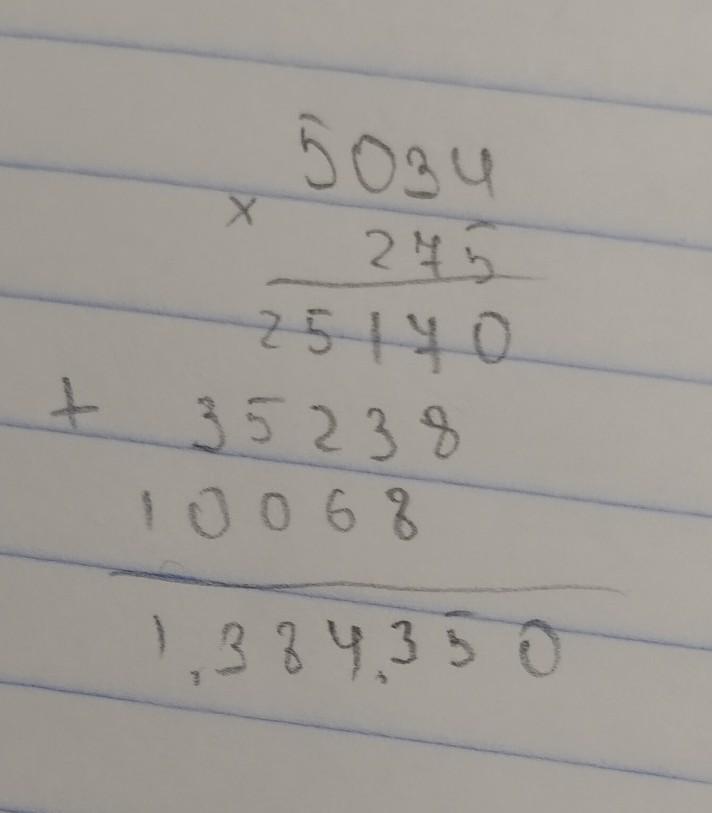 5034
× 275
25170
+ 35238
10068
1,384,350